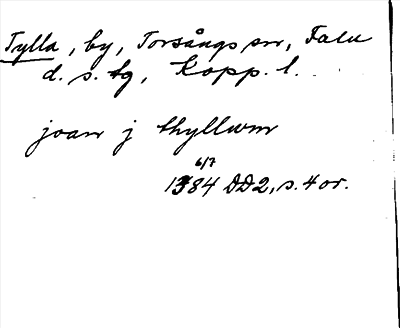 Tylla, by, Torsångs sn, Falu
d. s. tg, Kopp. l.
joan j thyllwm
6/7
1384 DD2, s. 4 or.